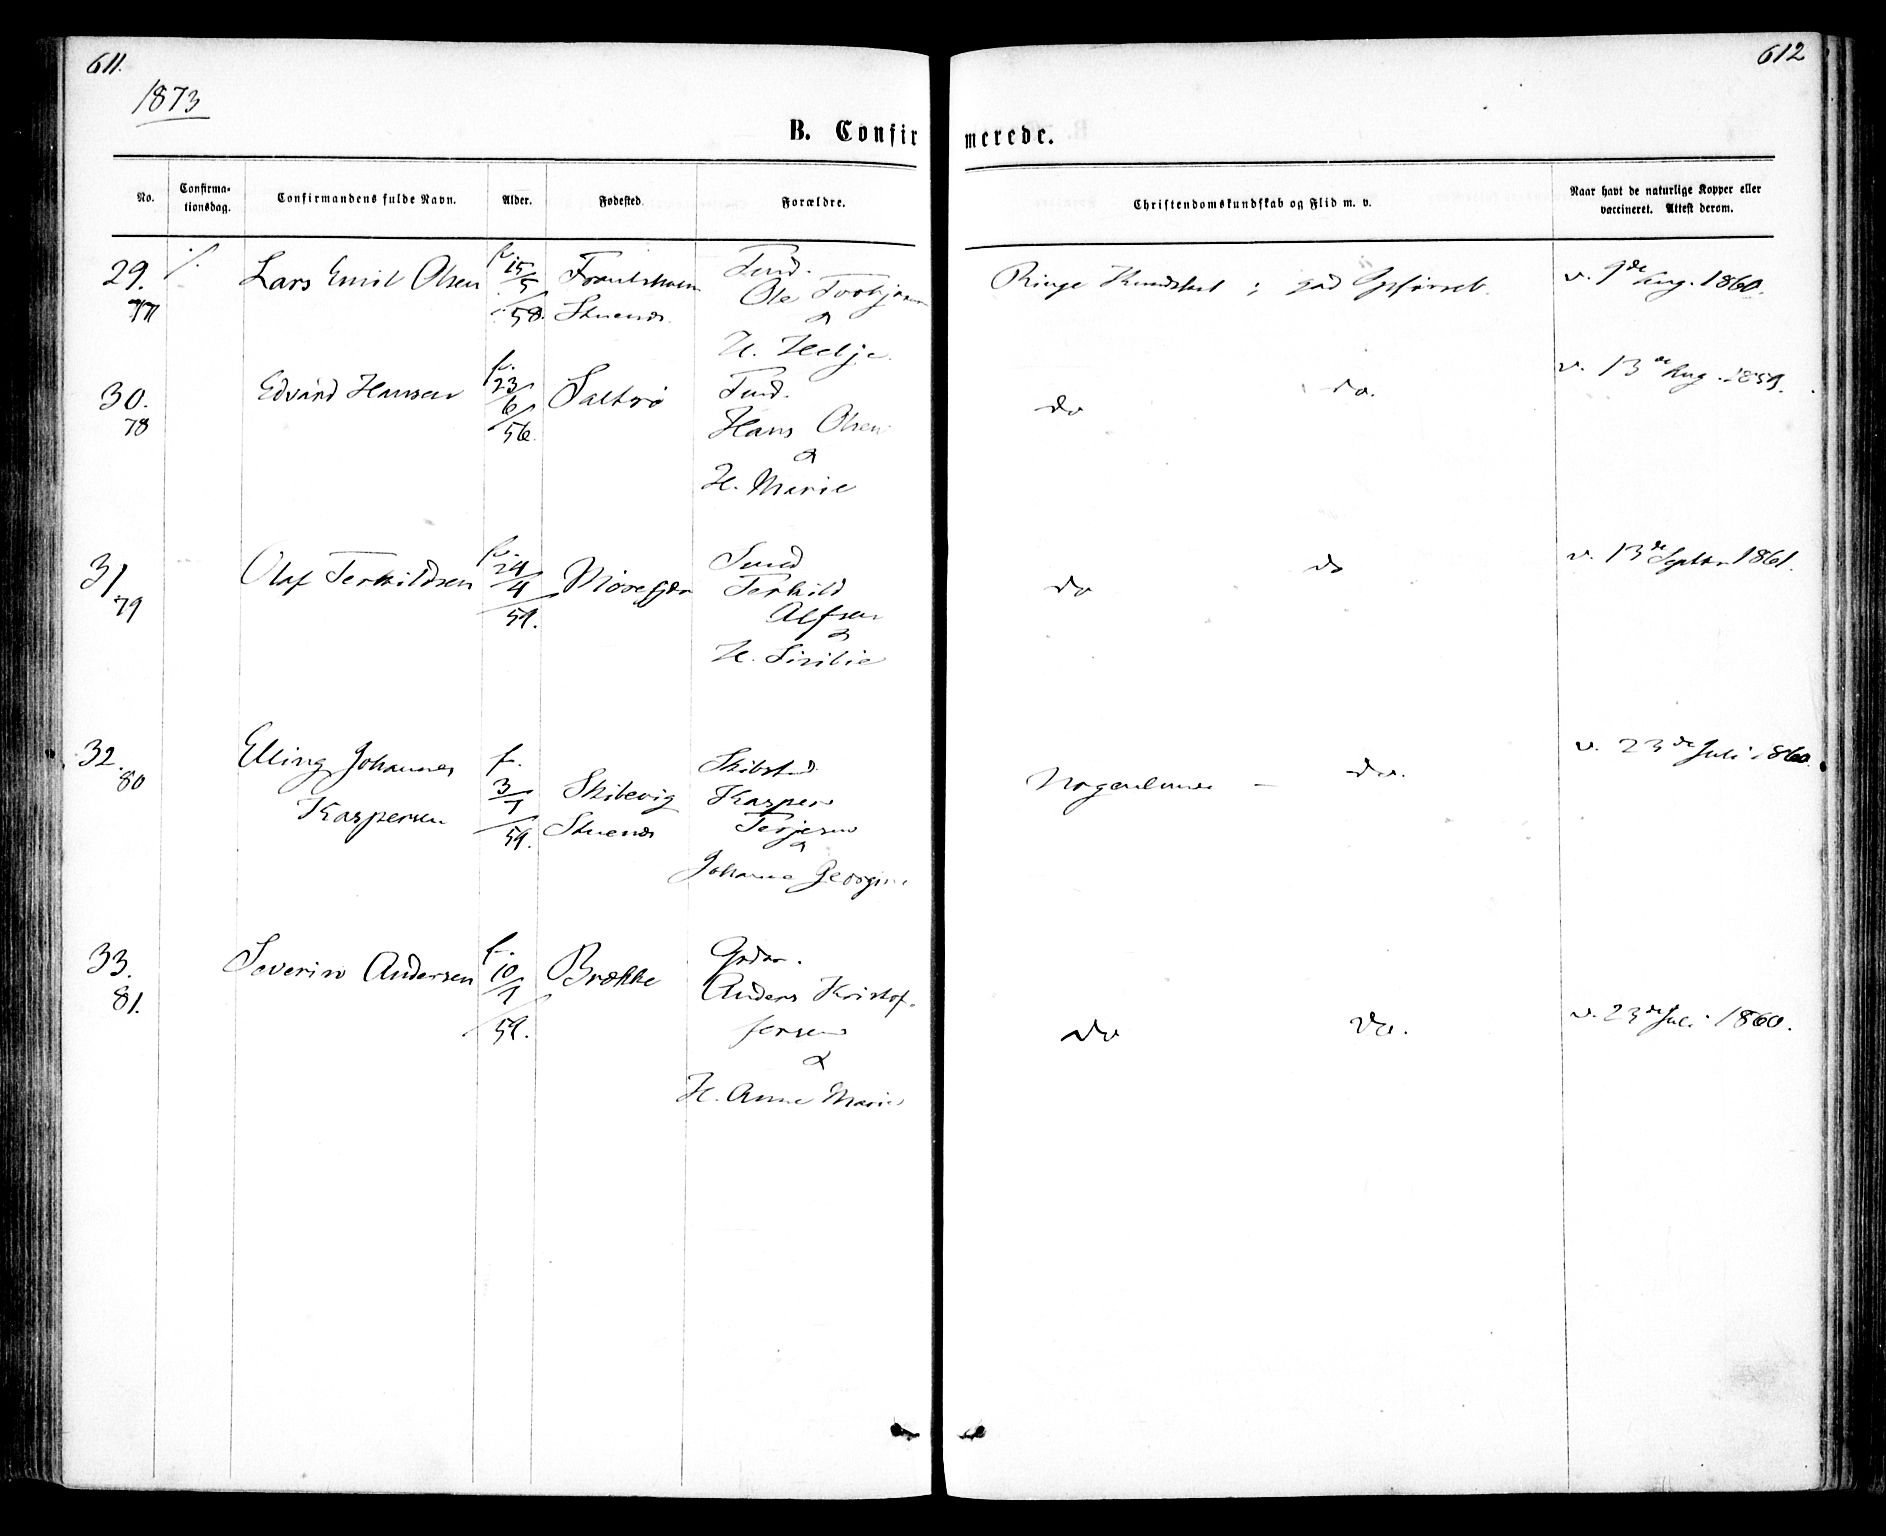 611.
612
1873
B. Confirmerede.
No.
Confirmationsdag.
Confirmandens fulde Navn.
Alder.
Fødested
Forældre.
Christendomskundskab og Flid m. v.
Naar havt de naturlige Kopper eller
vaccineret. Attest derom.
29.
77
Lars Emil Olsen
f. 15/5 58.
Stuenes
Ole
&
H. Helje
Ringe Kundskab ; god Opførsel.
v. 9de Aug. 1860.
30.
78
Edvard Hansen
f. 23/6 56.
Saltrø
Hans Olsen
&
H. Marie
do
do.
v. 13de Aug. 1859.
31
79
Olaf Terkildsen
f. 24/4 59.
Terkild
Alfsen
&
H.
do
do
v. 13de Septbr 1861.
32.
80
Elling Johannes
Kaspersen
f. 3/1 59.
Skibevig
Stuenes
Kasper
Terjesen
&
Johanne Georgine
Nogenlunde — do.
v. 23de Juli 1860.
33.
81.
Severin Andersen
f. 10/1 59.
Brække
Anders Kristof-
fersen
&
H. Anne Marie
do
do.
v. 23de Juli 1860.